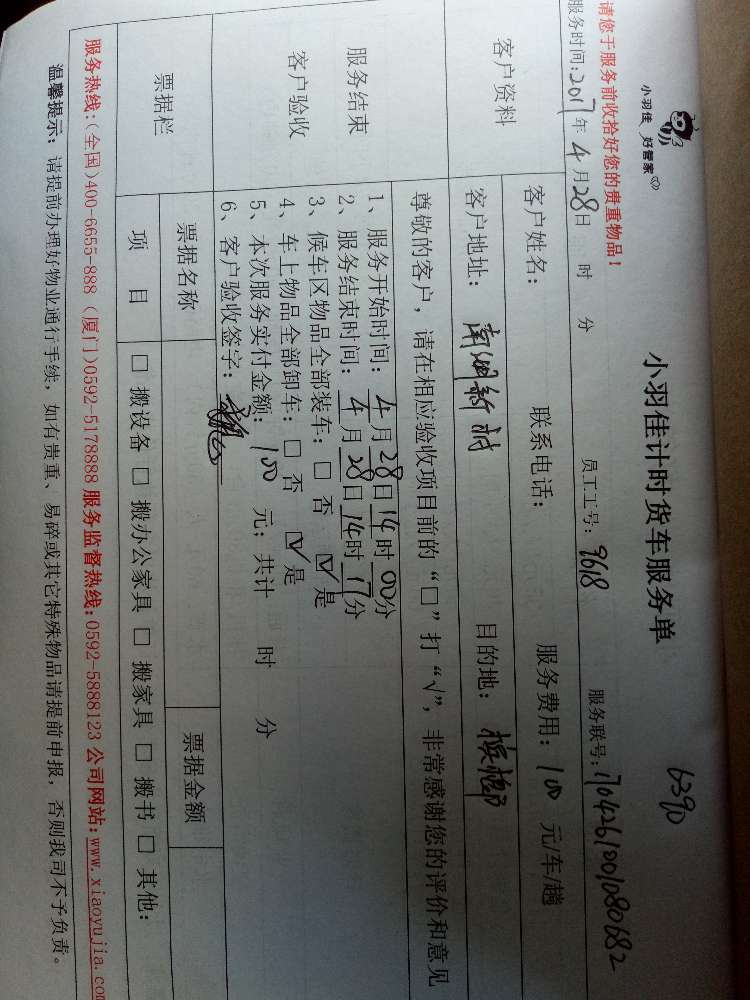 小羽佳 好管家
6390
小羽佳计时货车服务单
请您于服务前收拾好您的贵重物品！
服务时间:2017年4月28日 时 分 员工工号: 9618 服务联号:1704261001080682
客户资料
客户姓名: 联系电话: 服务费用: 100 元/车/趟
客户地址: 目的地:
服务结束
客户验收
尊敬的客户，请在相应验收项目前的“□”打“√”，非常感谢您的评价和意见
1、服务开始时间: 4月28日14时00分
2、服务结束时间: 4月28日14时17分
3、候车区物品全部装车: □ 否 ☑ 是
4、车上物品全部卸车: □ 否 ☑ 是
5、本次服务实付金额: 100 元; 共计 时 分
6、客户验收签字:
票据栏
票据名称 票据金额
项 目 □ 搬设备 □ 搬办公家具 □ 搬家具 □ 搬书 □ 其他:
服务热线:(全国)400-6655-888 (厦门)0592-5178888 服务监督热线:0592-5888123 公司网站:www.xiaoyujia.com
温馨提示: 请提前办理好物业通行手续, 如有贵重、易碎或其它特殊物品请提前申报, 否则我司不予负责。